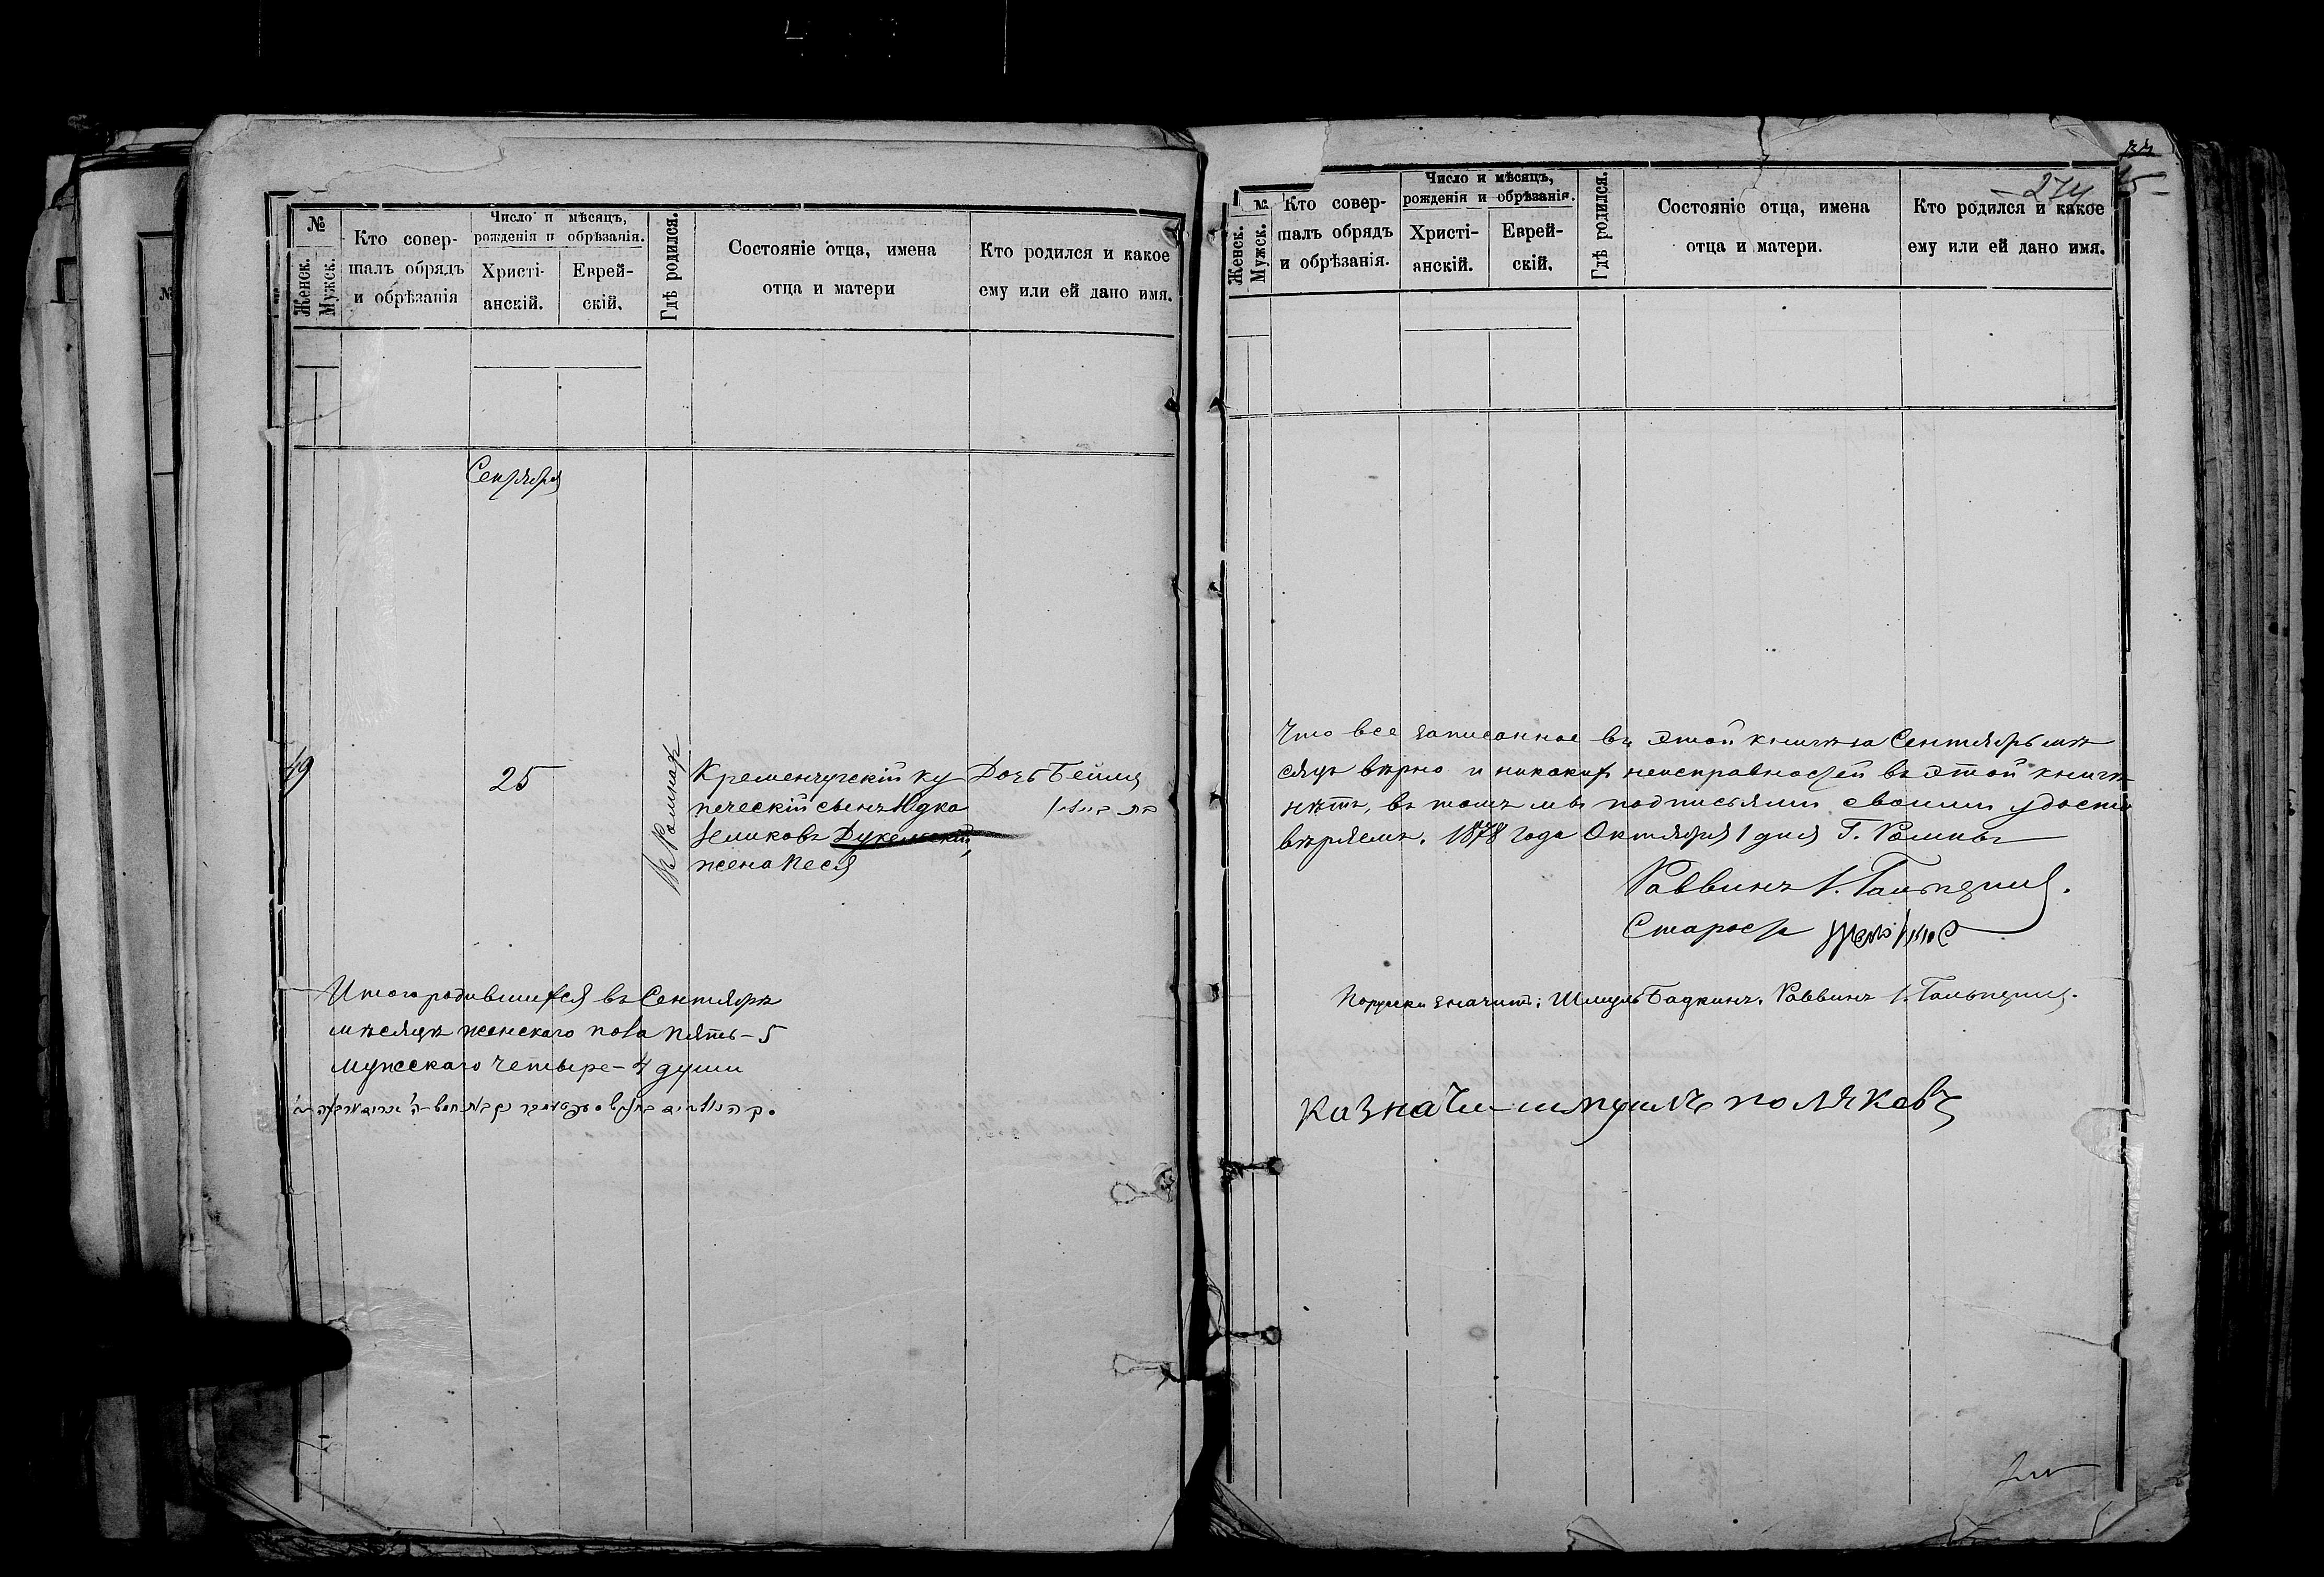 №
Женск.
Мужск.
Кто совер-
шалъ обрядъ
и обрѣзанія
Число и мѣсяцъ,
рожденія и обрѣзанія.
Христі-
анскій.
Еврей-
скій.
Гдѣ родился.
Состояніе отца, имена
отца и матери
Кто родился и какое
ему или ей дано имя.
Сентября
49
25
Въ Ромнахъ
Кременчугскій ку
печескій сынъ Юдка
Зеликовъ Дукельскій,
жена Песя
Дочь Бейля
Итого родившихся въ Сентябрѣ
мѣсяцѣ женскаго пола пять - 5
мужскаго четыре - 4 души
274
15
№
Женск.
Мужск.
Кто совер-
шалъ обрядъ
и обрѣзанія.
Число и мѣсяцъ,
рожденія и обрѣзанія.
Христі-
анскій.
Еврей-
скій.
Гдѣ родился.
Состояніе отца, имена
отца и матери.
Кто родился и какое
ему или ей дано имя.
Что все записанное въ этой книгѣ за Сентябрь мѣ
сяцъ вѣрно и никакихъ неисправностей въ этой книгѣ
нѣтъ, въ томъ мы подписями своими удосто
вѣряемъ. 1878 года Октября 1 дня Г. Ромны
Раввинъ І. Гальпернъ.
Староста
значитъ: Шмуль Бадкинъ. Раввинъ І. Гальпернъ.
казначи поляковъ